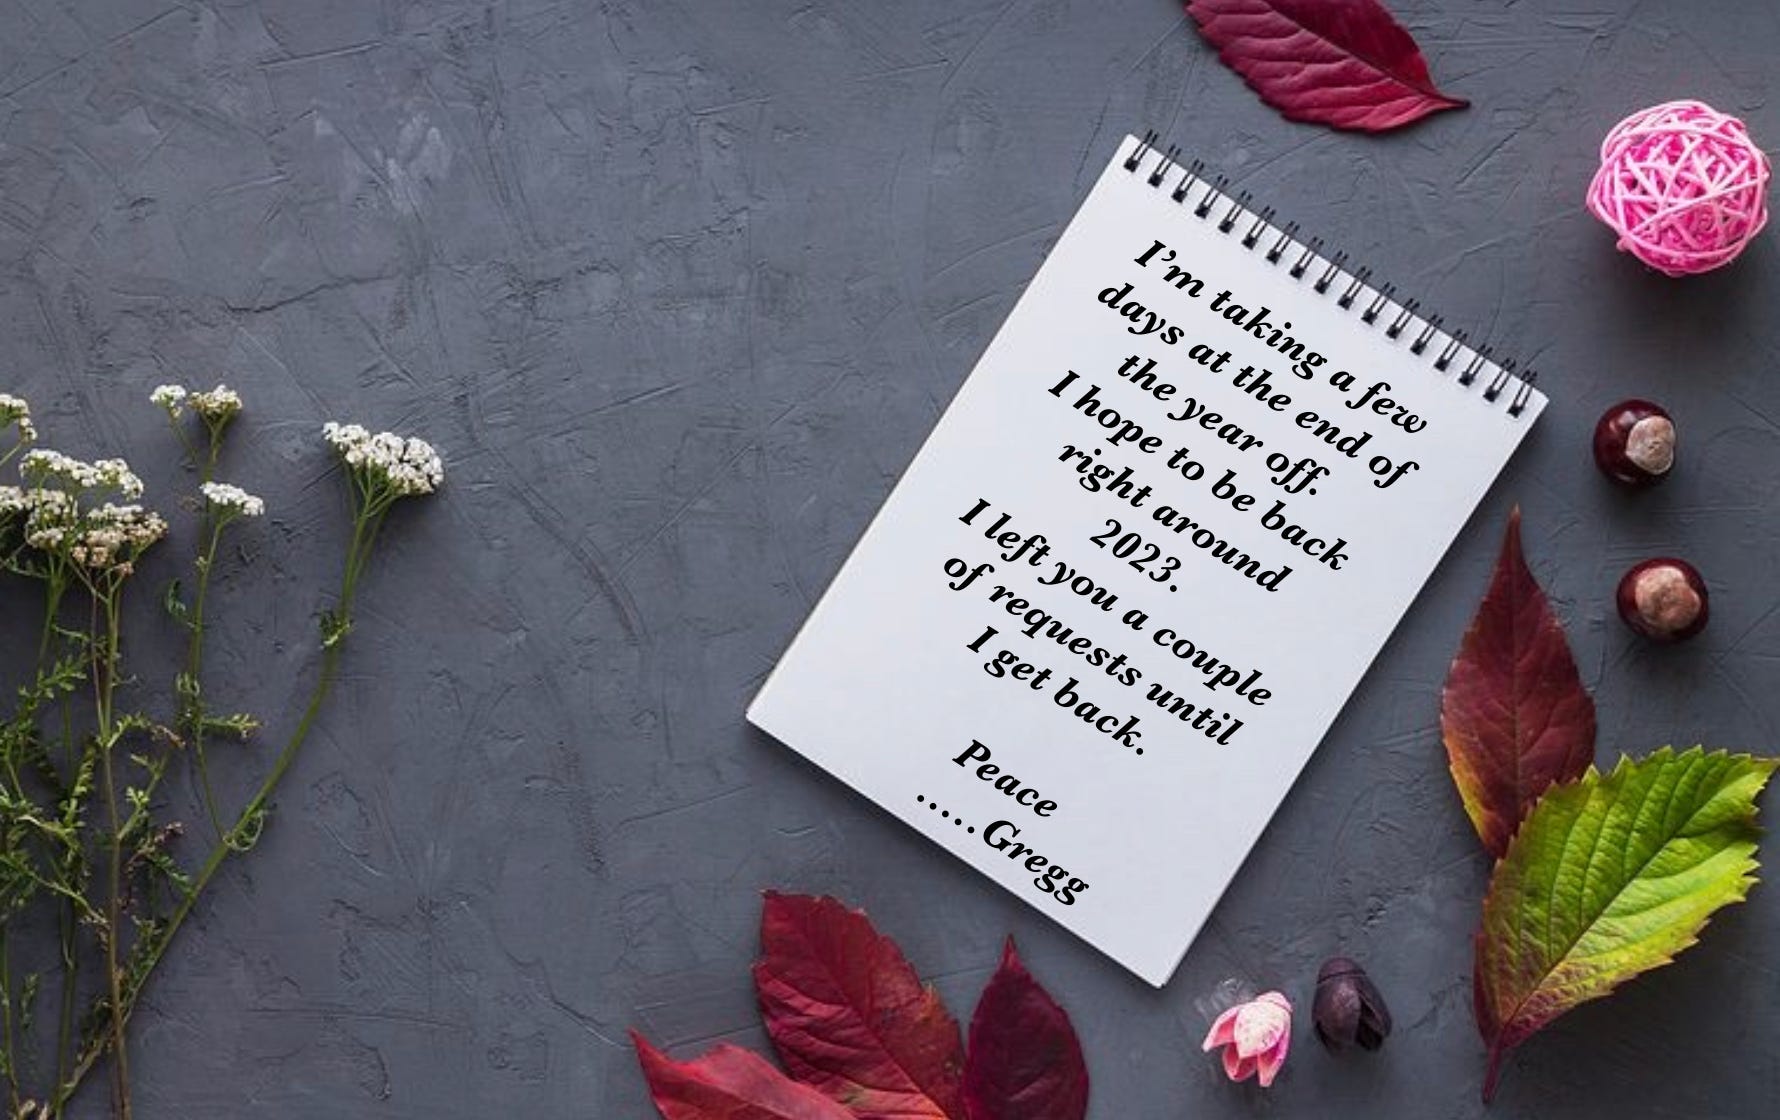 I’m taking a few
days at the end of
the year off.
I hope to be back
right around
2023.
I left you a couple
of requests until
I get back.
Peace
.....Gregg